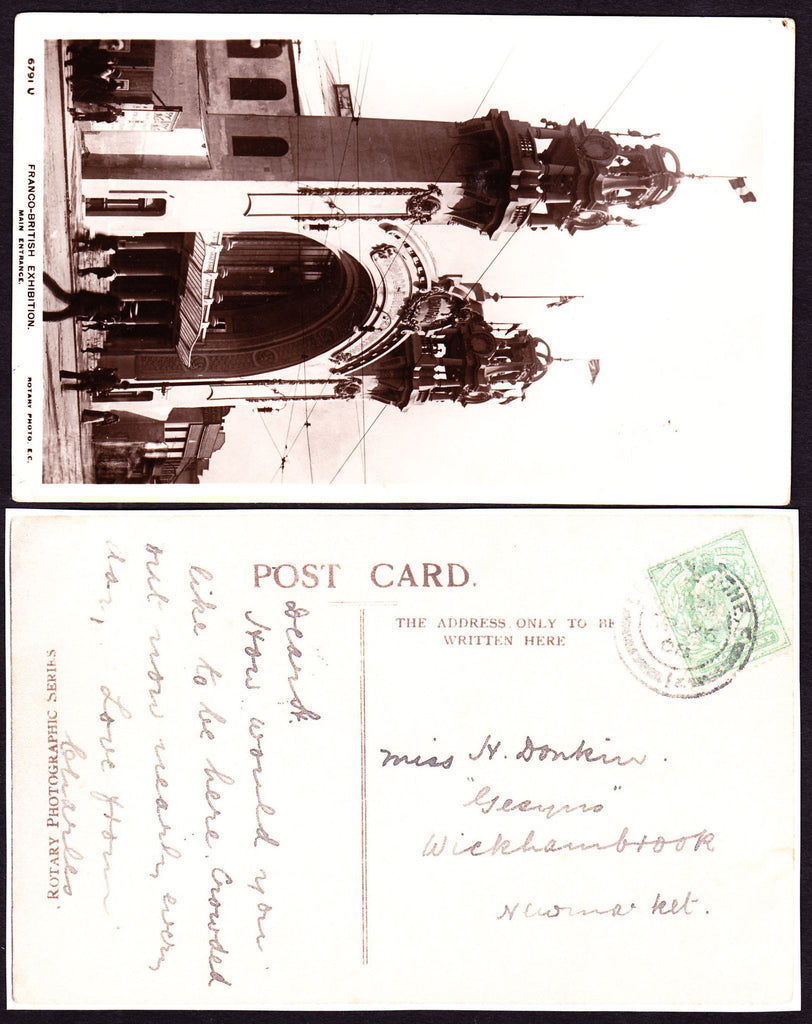 6791 U
FRANCO-BRITISH EXHIBITION.
MAIN ENTRANCE.
ROTARY PHOTO. E.C.
POST CARD.
THE ADDRESS ONLY TO BE
WRITTEN HERE
ROTARY PHOTOGRAPHIC SERIES
Dear H.
How would you
like to be here. Crowded
out now nearly every
day,
Love from
Charles
Miss H. Donkin.
Wickhambrook
Newmarket.